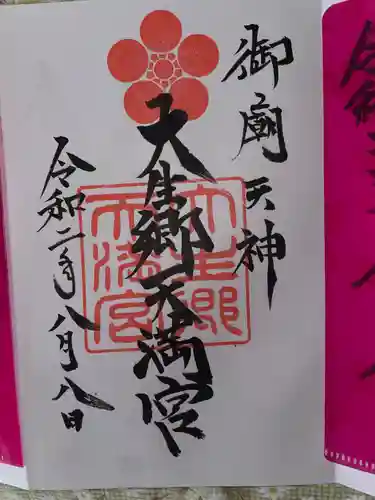 御廟天神
大生郷天満宮
令和二年八月八日
大生郷天満宮